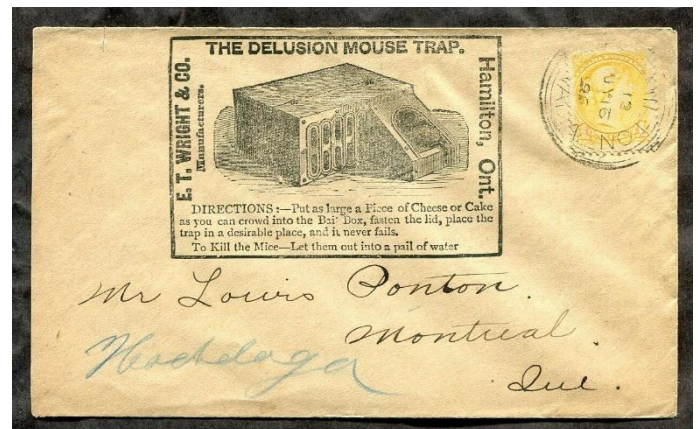 THE DELUSION MOUSE TRAP.
E. T. WRIGHT & CO.
Manufacturers.
Hamilton, Ont.
DIRECTIONS:—Put as large a Piece of Cheese or Cake
as you can crowd into the Bait Box, fasten the lid, place the
trap in a desirable place, and it never fails.
To Kill the Mice—Let them out into a pail of water
Mr Louis Ponton.
Montreal.
Que.
Hochelaga
12